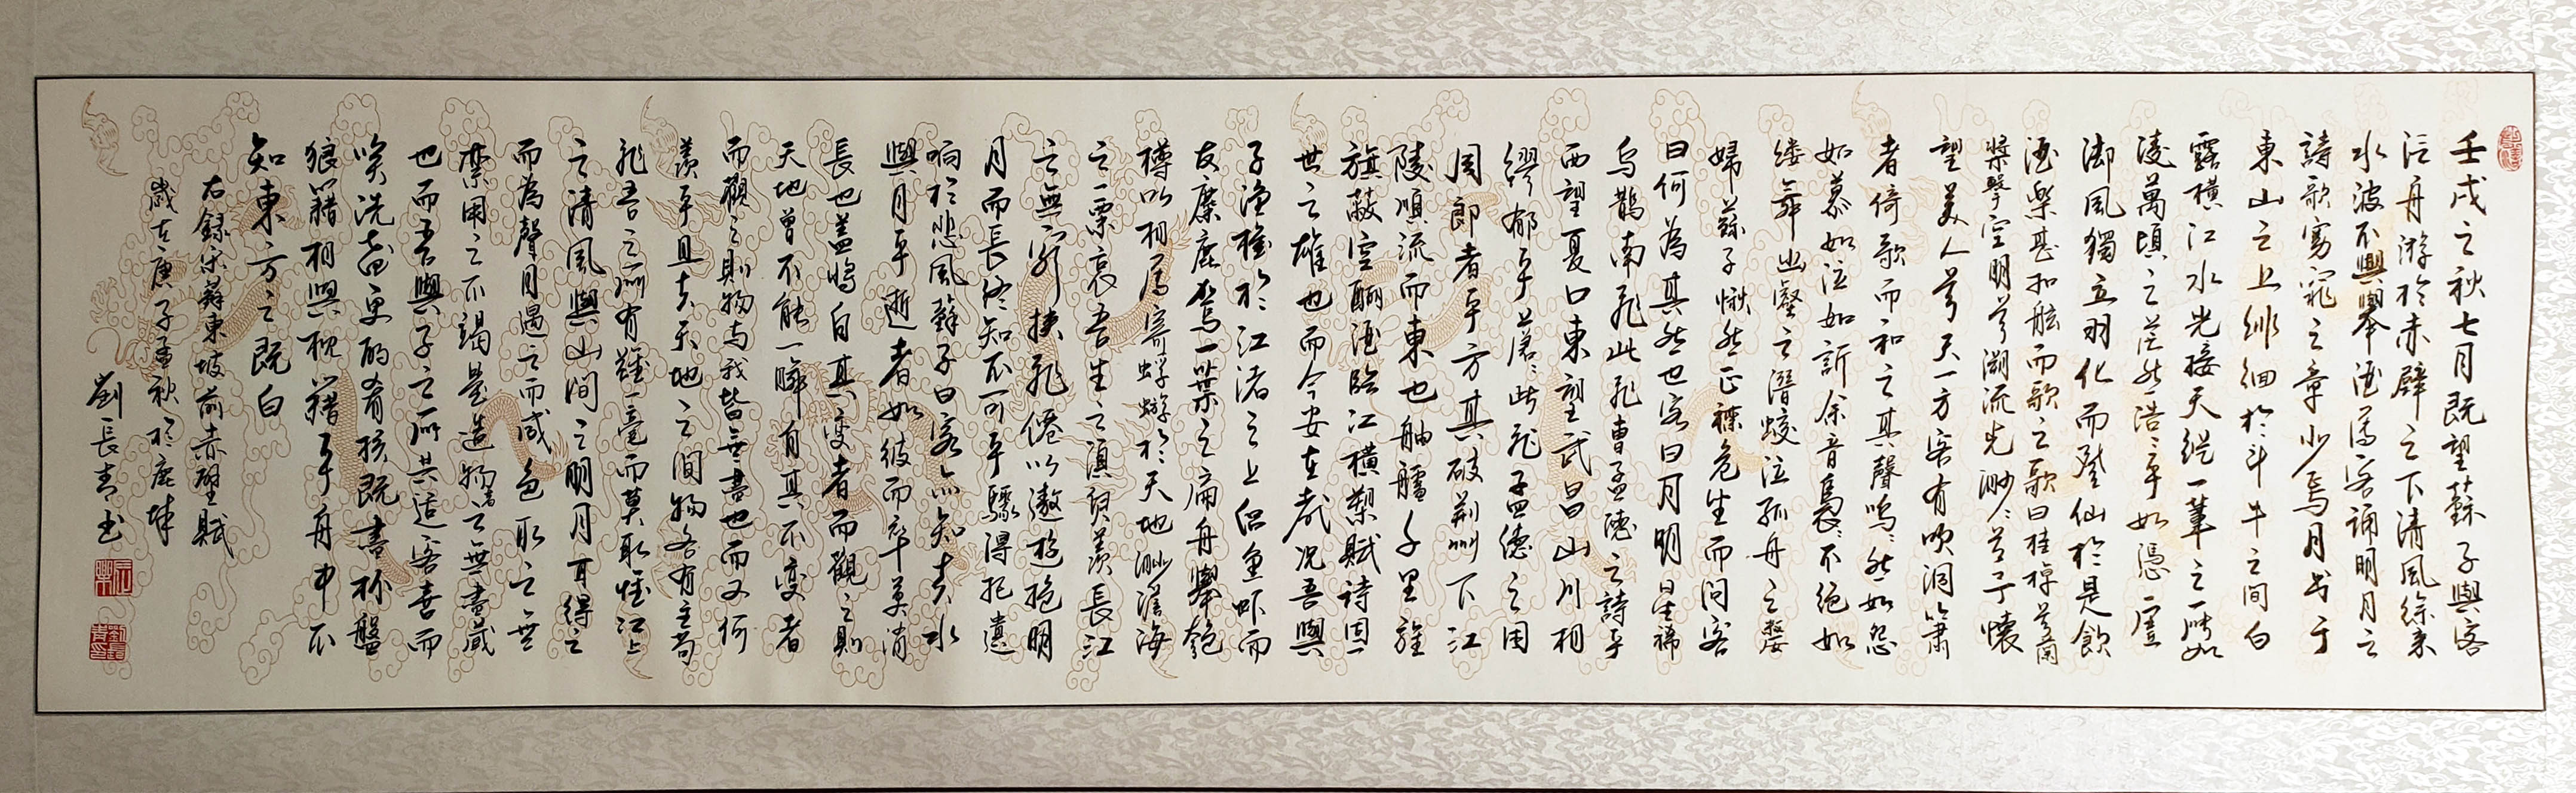 壬戌之秋七月既望蘇子與客
泛舟游於赤壁之下清風徐来
水波不興舉酒属客誦明月之
詩歌窈窕之章少焉月出于
東山之上徘徊於斗牛之间白
露横江水光接天縱一葦之所如
凌萬頃之茫然浩〻乎如憑虚
御風獨立羽化而登仙於是飲
酒樂甚扣舷而歌之歌曰桂棹兮蘭
槳擊空明兮溯流光渺〻兮予懷
望美人兮天一方客有吹洞簫
者倚歌而和之其聲嗚〻然如怨
如慕如泣如訴余音裊〻不绝如
缕舞幽壑之潛蛟泣孤舟之嫠
婦蘇子愀然正襟危坐而问客
曰何為其然也客曰月明星稀
烏鵲南飛此非曹孟德之詩乎
西望夏口東望武昌山川相
繆郁乎蒼〻此非孟德之困
周郎者乎方其破荆州下江
陵順流而東也舳艫千里旌
旗蔽空釃酒臨江横槊賦诗固一
世之雄也而今安在哉况吾與
子渔樵於江渚之上侣鱼虾而
友麋鹿驾一葉之扁舟舉匏
樽以相属寄蜉蝣於天地渺滄海
之一粟哀吾生之須臾羡長江
之無窮挟飛僊以遨遊抱明
月而長终知不可乎驟得托遺
响於悲風蘇子曰客亦知夫水
與月乎逝者如彼而卒莫消
長也盖將自其變者而觀之則
天地曾不能一瞬自其不變者
而觀之则物与我皆无盡也而又何
羡乎且夫天地之间物各有主苟
非吾之所有雖一毫而莫取惟江上
之清風與山间之明月耳得之
而為聲目遇之而成色取之无
禁用之不竭是造物者之無盡藏
也而吾與子之所共适客喜而
笑洗盏更酌肴核既盡杯盤
狼籍相與枕藉乎舟中不
知東方之既白
右録宋蘇東坡前赤壁賦
歲在庚子孟秋於鹿城
劉長青书